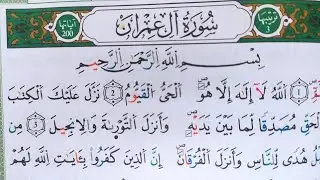 ترتيبها ٣ سُورَةُ آلِ عِمْرَان آياتها 200
بِسْمِ اللَّهِ الرَّحْمَٰنِ الرَّحِيمِ
اللَّهُ لَا إِلَٰهَ إِلَّا هُوَ الْحَيُّ الْقَيُّومُ ٢ نَزَّلَ عَلَيْكَ الْكِتَابَ
مُصَدِّقًا لِّمَا بَيْنَ يَدَيْهِ وَأَنزَلَ التَّوْرَاةَ وَالْإِنجِيلَ ٣ مِن
هُدًى لِّلنَّاسِ وَأَنزَلَ الْفُرْقَانَ إِنَّ الَّذِينَ كَفَرُوا بِآيَاتِ اللَّهِ لَهُمْ